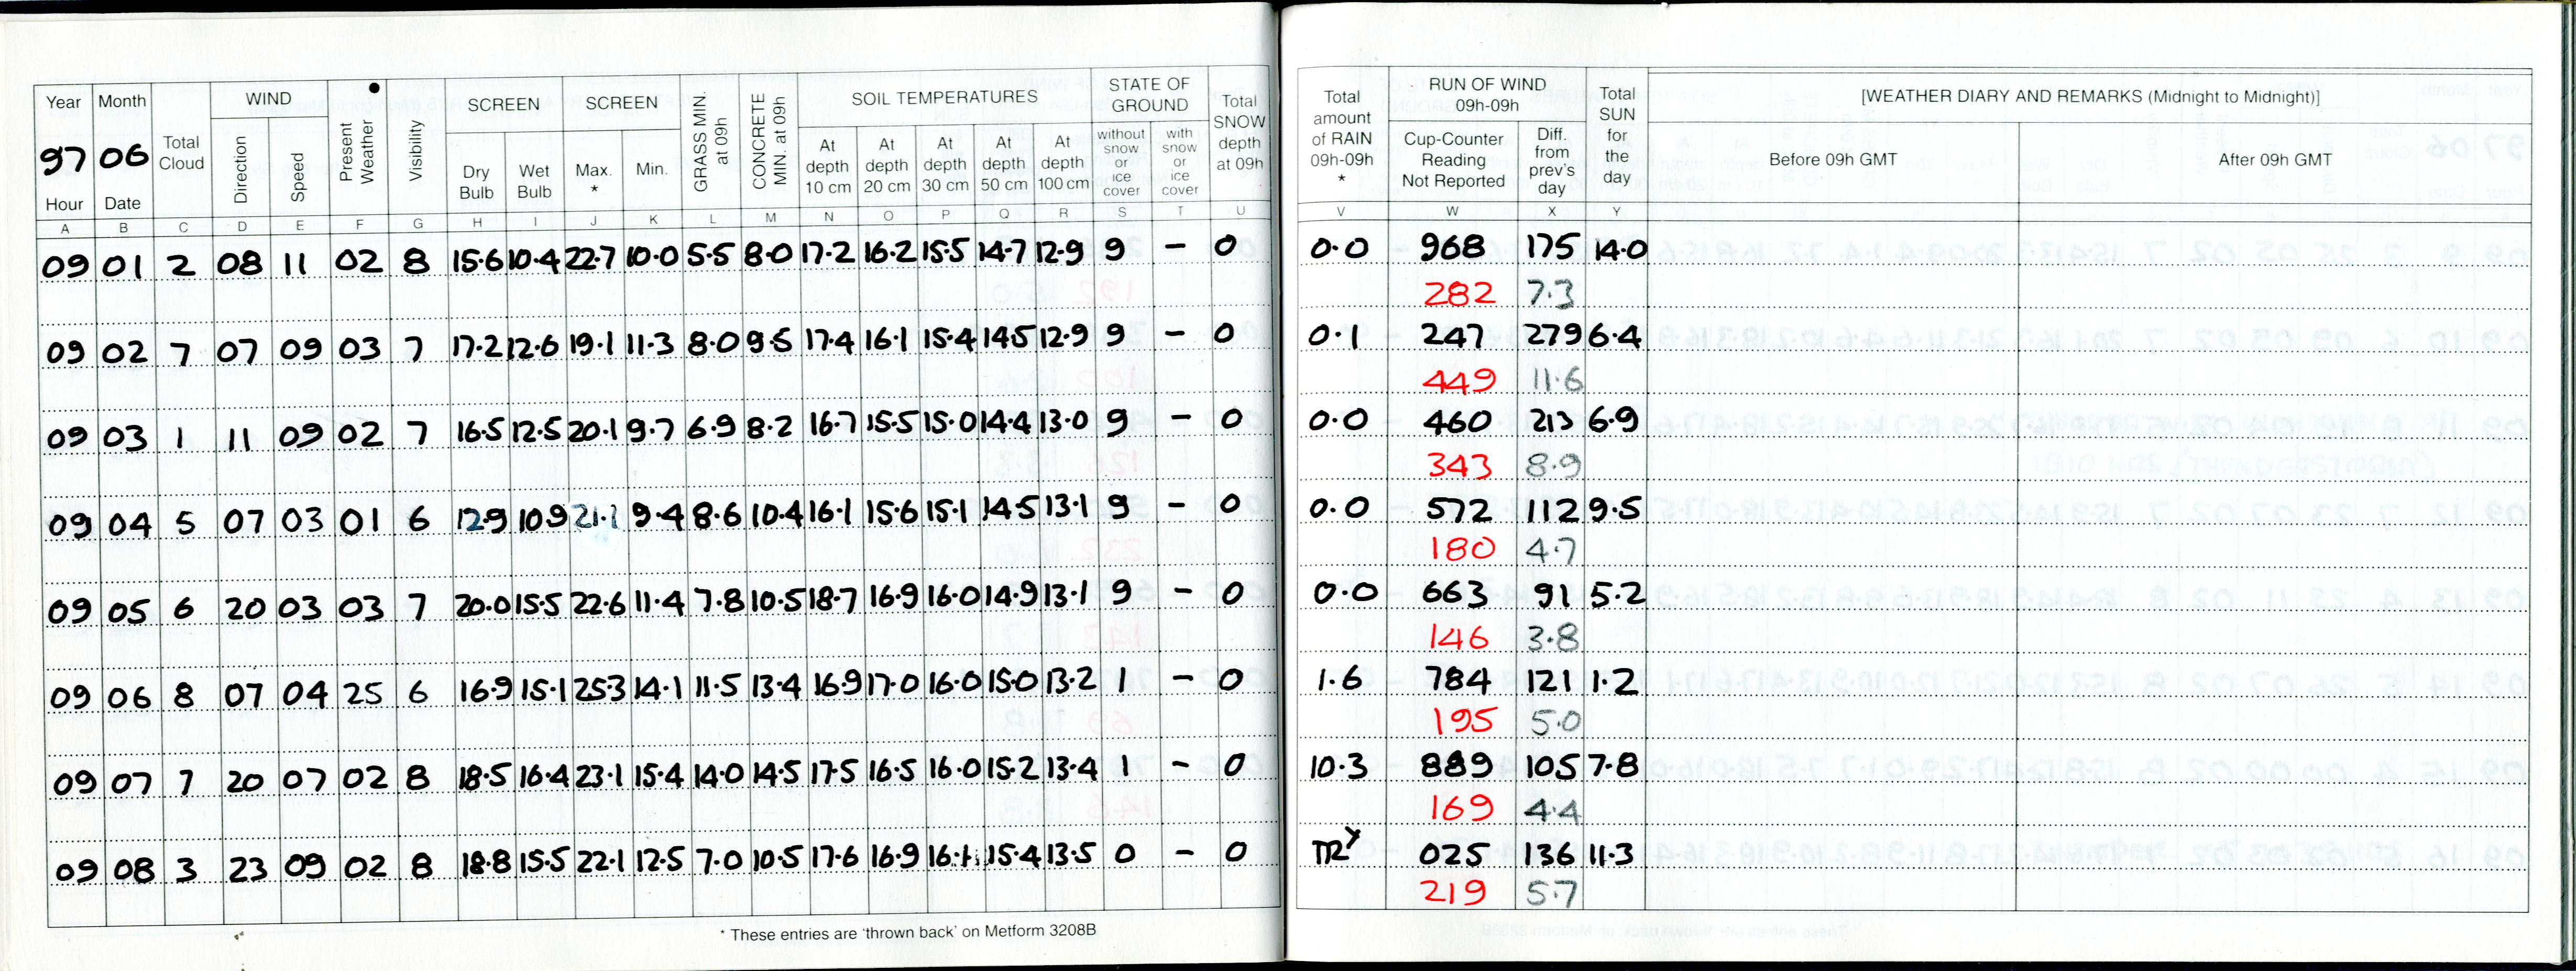 Year Month Total Cloud WIND Present Weather Visibility SCREEN SCREEN GRASS MIN. at 09h CONCRETE MIN. at 09h SOIL TEMPERATURES STATE OF GROUND Total SNOW depth at 09h Total amount of RAIN 09h-09h * RUN OF WIND 09h-09h Total SUN for the day [WEATHER DIARY AND REMARKS (Midnight to Midnight)]
97 06 Direction Speed Dry Bulb Wet Bulb Max. * Min. At depth 10 cm At depth 20 cm At depth 30 cm At depth 50 cm At depth 100 cm without snow or ice cover with snow or ice cover Cup-Counter Reading Not Reported Diff. from prev's day Before 09h GMT After 09h GMT
Hour Date
A B C D E F G H I J K L M N O P Q R S T U V W X Y
09 01 2 08 11 02 8 15.6 10.4 22.7 10.0 5.5 8.0 17.2 16.2 15.5 14.7 12.9 9 - 0 0.0 968 175 14.0
282 7.3
09 02 7 07 09 03 7 17.2 12.6 19.1 11.3 8.0 9.5 17.4 16.1 15.4 14.5 12.9 9 - 0 0.1 247 279 6.4
449 11.6
09 03 1 11 09 02 7 16.5 12.5 20.1 9.7 6.9 8.2 16.7 15.5 15.0 14.4 13.0 9 - 0 0.0 460 213 6.9
343 8.9
09 04 5 07 03 01 6 12.9 10.9 21.1 9.4 8.6 10.4 16.1 15.6 15.1 14.5 13.1 9 - 0 0.0 572 112 9.5
180 4.7
09 05 6 20 03 03 7 20.0 15.5 22.6 11.4 7.8 10.5 18.7 16.9 16.0 14.9 13.1 9 - 0 0.0 663 91 5.2
146 3.8
09 06 8 07 04 25 6 16.9 15.1 25.3 14.1 11.5 13.4 16.9 17.0 16.0 15.0 13.2 1 - 0 1.6 784 121 1.2
195 5.0
09 07 7 20 07 02 8 18.5 16.4 23.1 15.4 14.0 14.5 17.5 16.5 16.0 15.2 13.4 1 - 0 10.3 889 105 7.8
169 4.4
09 08 3 23 09 02 8 18.8 15.5 22.1 12.5 7.0 10.5 17.6 16.9 16.1 15.4 13.5 0 - 0 TRY 025 136 11.3
219 5.7
* These entries are 'thrown back' on Metform 3208B